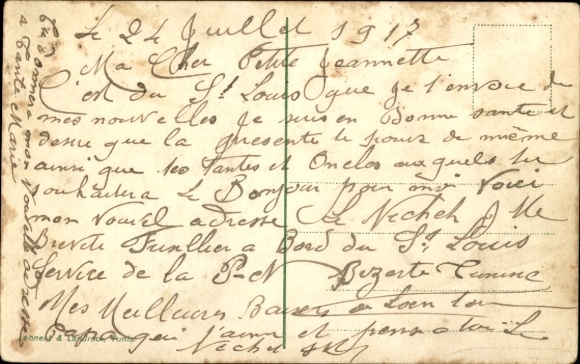 Le 24 Juillet 1917
Ma Cher Petite Jeannette
C'est du St Louis que Je t'envoie de
mes nouvelles Je suis en Bonne sante et
desire que la presente te pours de même
ainsi que tes Tantes et Oncles auxquels tu
souhaitera le Bonjour pour moi Voici
mon Nouvel adresse Le Nechet J Mle
Brevete Fusillier a Bord du St Louis
Service de la P-N Bizerte Tunisie
Mes Meilleures Baisers de Loin ton
Papa qui t'aime et pense a toi Le
Nechet
Tu donnera mon Nouvelle adresse
a Tante Marie
Lehnert & Landrock, Tunis